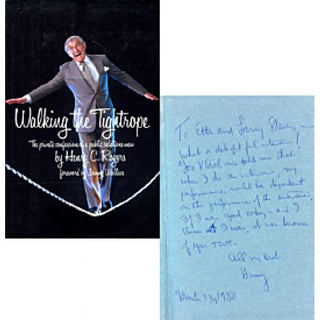 Walking the Tightrope
The private confessions of a public relations man
by Henry C. Rogers
foreword by Irving Wallace
To Etta and
what a delightful interview!
told me that
when I do an interview, my
performance would be dependent
on the performance of the interviewer.
If I was good today – and I
think I was, it was because
of you two.
All my best
Henry
March 13, 1980